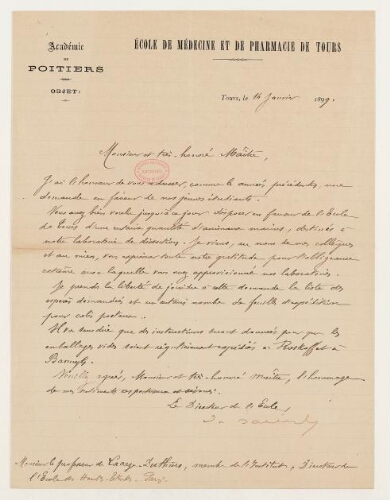 Académie
DE
POITIERS
OBJET:
ÉCOLE DE MÉDECINE ET DE PHARMACIE DE TOURS
Tours, le 14 Janvier 1899.
Monsieur et très-honoré Maître,
J'ai l'honneur de vous adresser, comme les années précédentes, une
demande en faveur de nos jeunes étudiants.
Vous avez bien voulu jusqu'à ce jour disposer en faveur de l'Ecole
de Tours d'une certaine quantité d'animaux marins, destinés à
notre laboratoire de dissection. Je viens, au nom de mes collègues
et au mien, vous exprimer toute notre gratitude pour l'obligeance
extrême avec laquelle vous avez approvisionné nos laboratoires.
Je prends la liberté de joindre à cette demande la liste des
espèces demandées et un certain nombre de feuilles d'expédition
pour colis postaux.
que des instructions soient données pour que les
emballages vides soient régulièrement expédiés à Roskoff et à
Banyuls.
Veuillez agréer, Monsieur et très-honoré Maître, l'hommage
de mes sentiments respectueux et
Le Directeur de l'Ecole,
Monsieur le professeur de Lacaze-Duthiers, membre de l'Institut, Directeur de
l'Ecole des Hautes Etudes - Paris